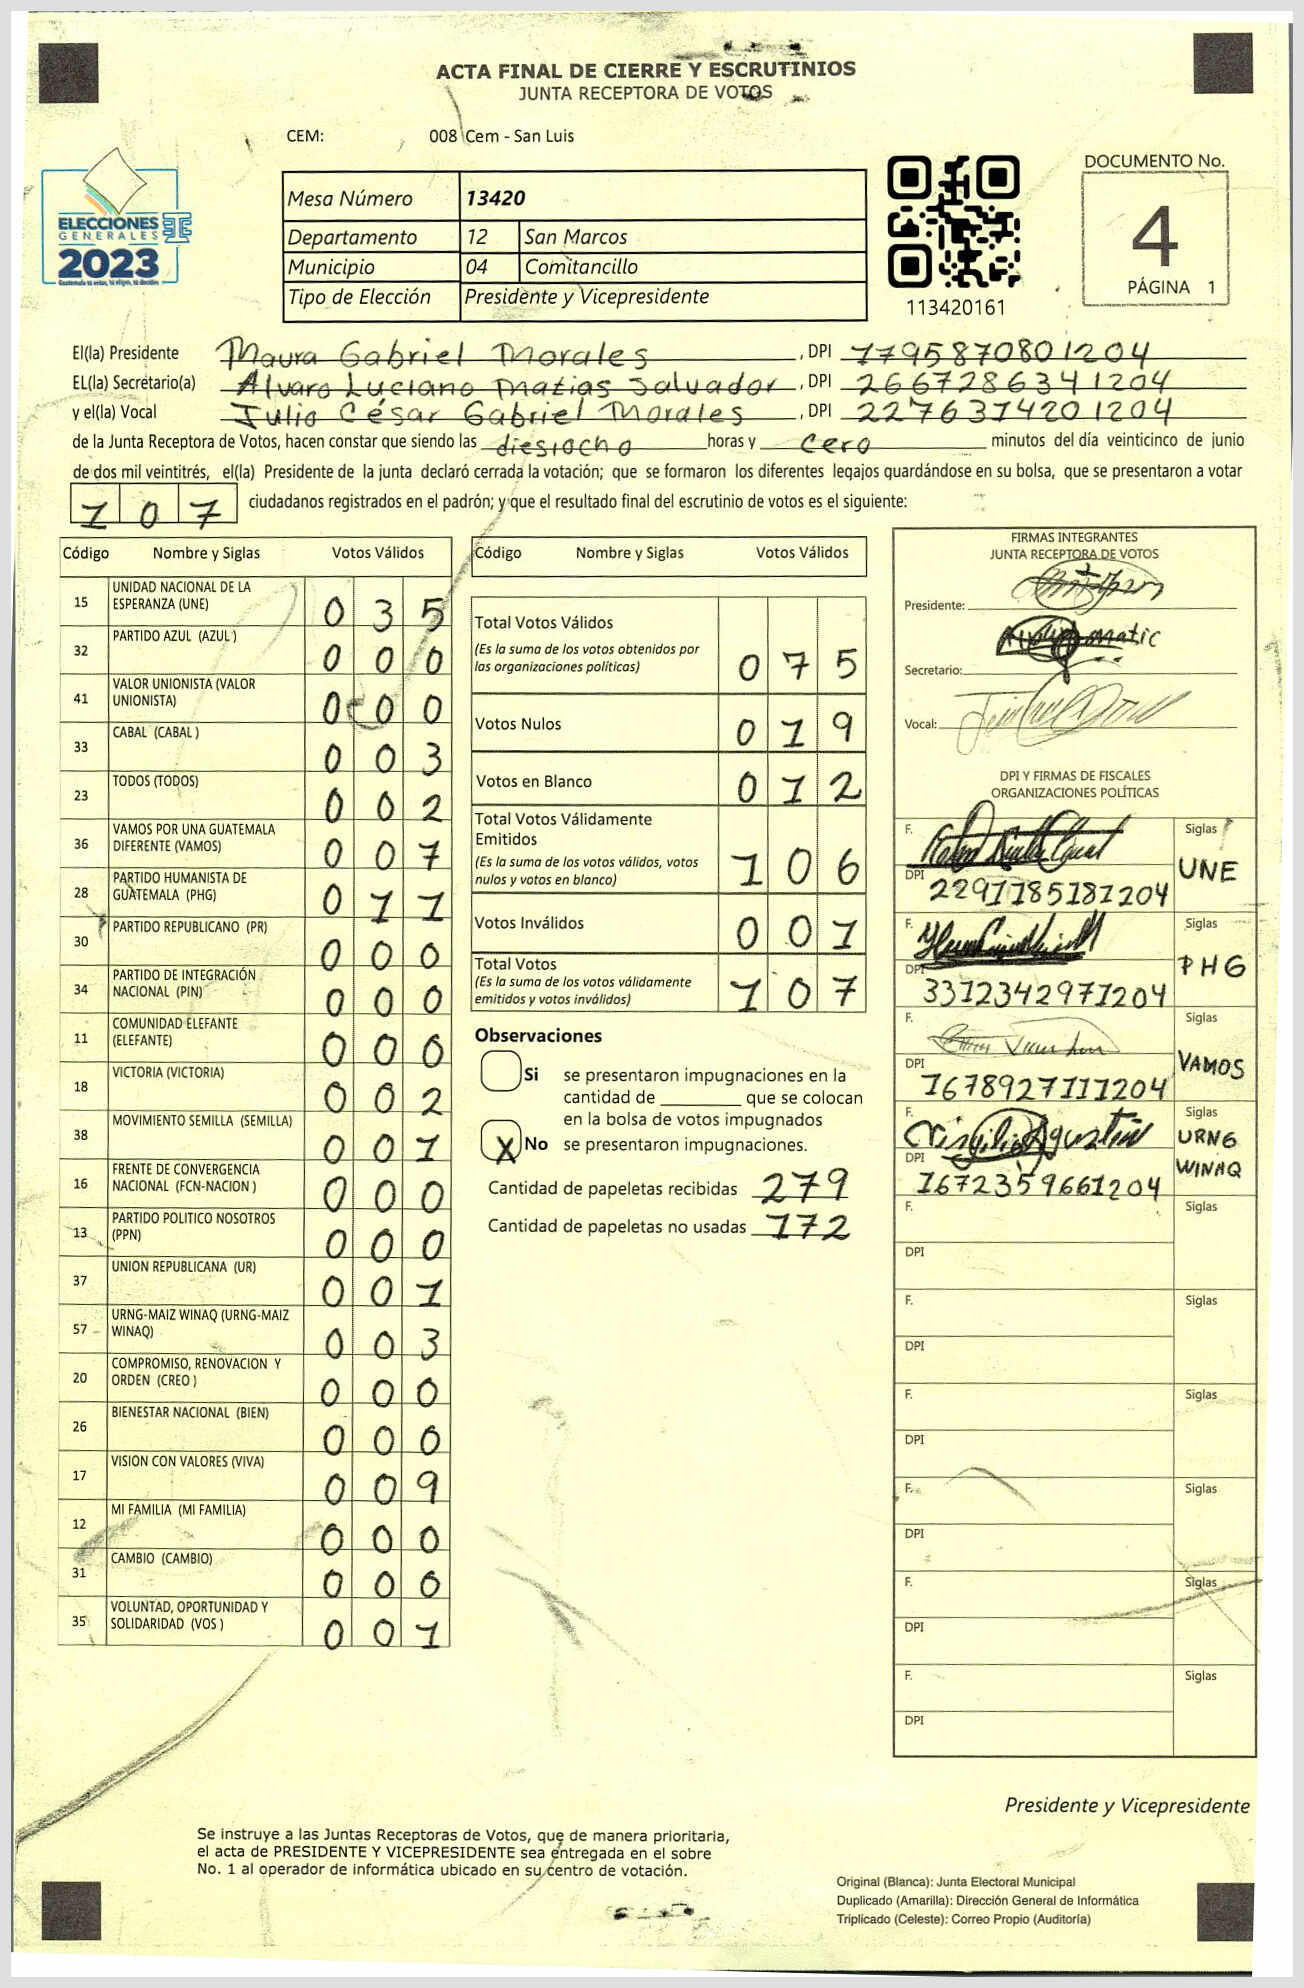 ACTA FINAL DE CIERRE Y ESCRUTINIOS
JUNTA RECEPTORA DE VOTOS
CEM: 008 Cem - San Luis
ELECCIONES
GENERALES
2023
Mesa Número 13420
Departamento 12 San Marcos
Municipio 04 Comitancillo
Tipo de Elección Presidente y Vicepresidente
113420161
DOCUMENTO No.
4
PÁGINA 1
El(la) Presidente Maura Gabriel Morales, DPI 1795870801204
EL(la) Secretario(a) Alvaro Luciano Matias Salvador, DPI 2667286341204
y el(la) Vocal Julio César Gabriel Morales, DPI 2276374201204
de la Junta Receptora de Votos, hacen constar que siendo las diesiocho horas y cero minutos del día veinticinco de junio
de dos mil veintitrés, el(la) Presidente de la junta declaró cerrada la votación; que se formaron los diferentes legajos guardándose en su bolsa, que se presentaron a votar
107 ciudadanos registrados en el padrón; y que el resultado final del escrutinio de votos es el siguiente:
Código Nombre y Siglas Votos Válidos
15 UNIDAD NACIONAL DE LA ESPERANZA (UNE) 035
32 PARTIDO AZUL (AZUL ) 000
41 VALOR UNIONISTA (VALOR UNIONISTA) 000
33 CABAL (CABAL ) 003
23 TODOS (TODOS) 002
36 VAMOS POR UNA GUATEMALA DIFERENTE (VAMOS) 007
28 PARTIDO HUMANISTA DE GUATEMALA (PHG) 011
30 PARTIDO REPUBLICANO (PR) 000
34 PARTIDO DE INTEGRACIÓN NACIONAL (PIN) 000
11 COMUNIDAD ELEFANTE (ELEFANTE) 000
18 VICTORIA (VICTORIA) 002
38 MOVIMIENTO SEMILLA (SEMILLA) 001
16 FRENTE DE CONVERGENCIA NACIONAL (FCN-NACION ) 000
13 PARTIDO POLITICO NOSOTROS (PPN) 000
37 UNION REPUBLICANA (UR) 001
57 URNG-MAIZ WINAQ (URNG-MAIZ WINAQ) 003
20 COMPROMISO, RENOVACION Y ORDEN (CREO ) 000
26 BIENESTAR NACIONAL (BIEN) 000
17 VISION CON VALORES (VIVA) 009
12 MI FAMILIA (MI FAMILIA) 000
31 CAMBIO (CAMBIO) 000
35 VOLUNTAD, OPORTUNIDAD Y SOLIDARIDAD (VOS ) 001
Código Nombre y Siglas Votos Válidos
Total Votos Válidos
(Es la suma de los votos obtenidos por
las organizaciones políticas) 075
Votos Nulos 019
Votos en Blanco 012
Total Votos Válidamente
Emitidos
(Es la suma de los votos válidos, votos
nulos y votos en blanco) 106
Votos Inválidos 001
Total Votos
(Es la suma de los votos válidamente
emitidos y votos inválidos) 107
Observaciones
Si se presentaron impugnaciones en la
cantidad de ________ que se colocan
en la bolsa de votos impugnados
X No se presentaron impugnaciones.
Cantidad de papeletas recibidas 279
Cantidad de papeletas no usadas 172
FIRMAS INTEGRANTES
JUNTA RECEPTORA DE VOTOS
Presidente:
Secretario:
Vocal:
DPI Y FIRMAS DE FISCALES
ORGANIZACIONES POLÍTICAS
F. Siglas
UNE
DPI 2291185181204
F. Siglas
PHG
DPI 3312342971204
F. Siglas
VAMOS
DPI 1678927111204
F. Virgilio Agustin Siglas
URNG
WINAQ
DPI 1672359661204
F. Siglas
DPI
F. Siglas
DPI
F. Siglas
DPI
F. Siglas
DPI
F. Siglas
DPI
F. Siglas
DPI
Presidente y Vicepresidente
Se instruye a las Juntas Receptoras de Votos, que de manera prioritaria,
el acta de PRESIDENTE Y VICEPRESIDENTE sea entregada en el sobre
No. 1 al operador de informática ubicado en su centro de votación.
Original (Blanca): Junta Electoral Municipal
Duplicado (Amarilla): Dirección General de Informática
Triplicado (Celeste): Correo Propio (Auditoría)